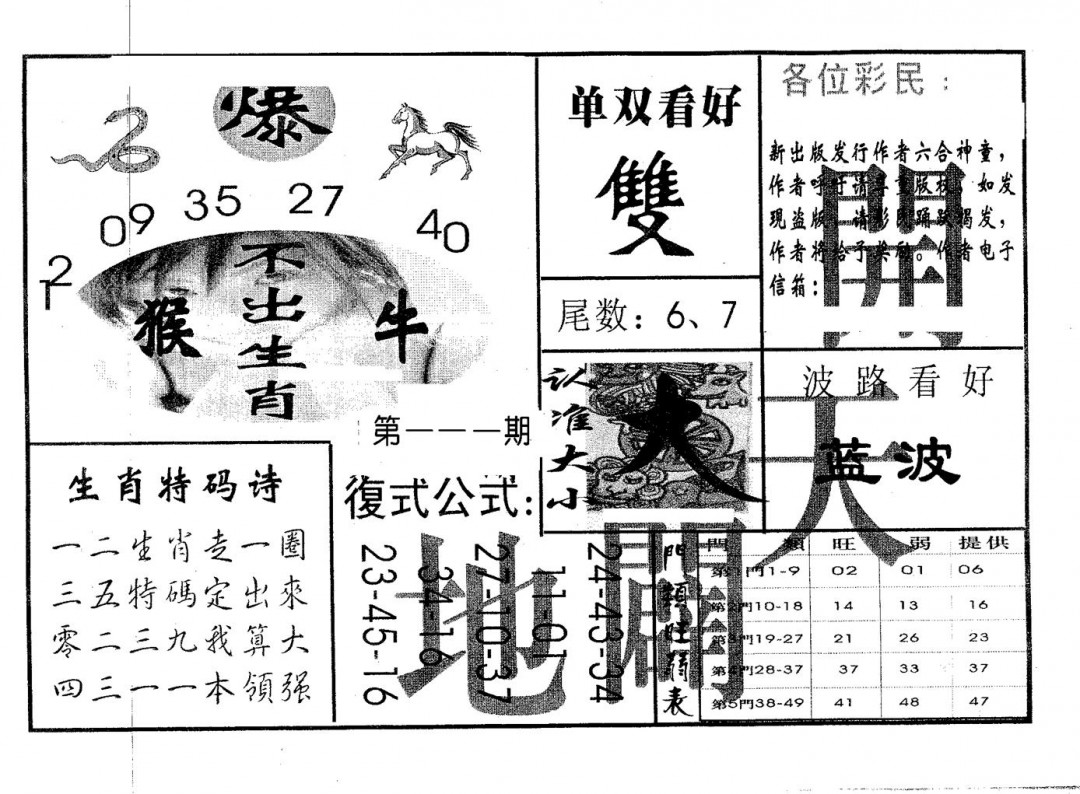 爆
12 09 35 27 40
不出生肖
猴
牛
第一一一期
单双看好
雙
尾数：6、7
各位彩民：
新出版发行作者六合神童，
作者呼吁请尊重版权。如发
现盗版，请彩民踊跃揭发，
作者将给予奖励。作者电子
信箱：
開
天
闢
地
认准大小
大
波路看好
蓝波
生肖特码诗
一二生肖走一圈
三五特碼定出來
零二三九我算大
四三一一本領强
復式公式：
23-45-16
34-16
27-10-37
11-01
24-43-34
門類旺弱表
門類 旺 弱 提供
第1門1-9 02 01 06
第2門10-18 14 13 16
第3門19-27 21 26 23
第4門28-37 37 33 37
第5門38-49 41 48 47